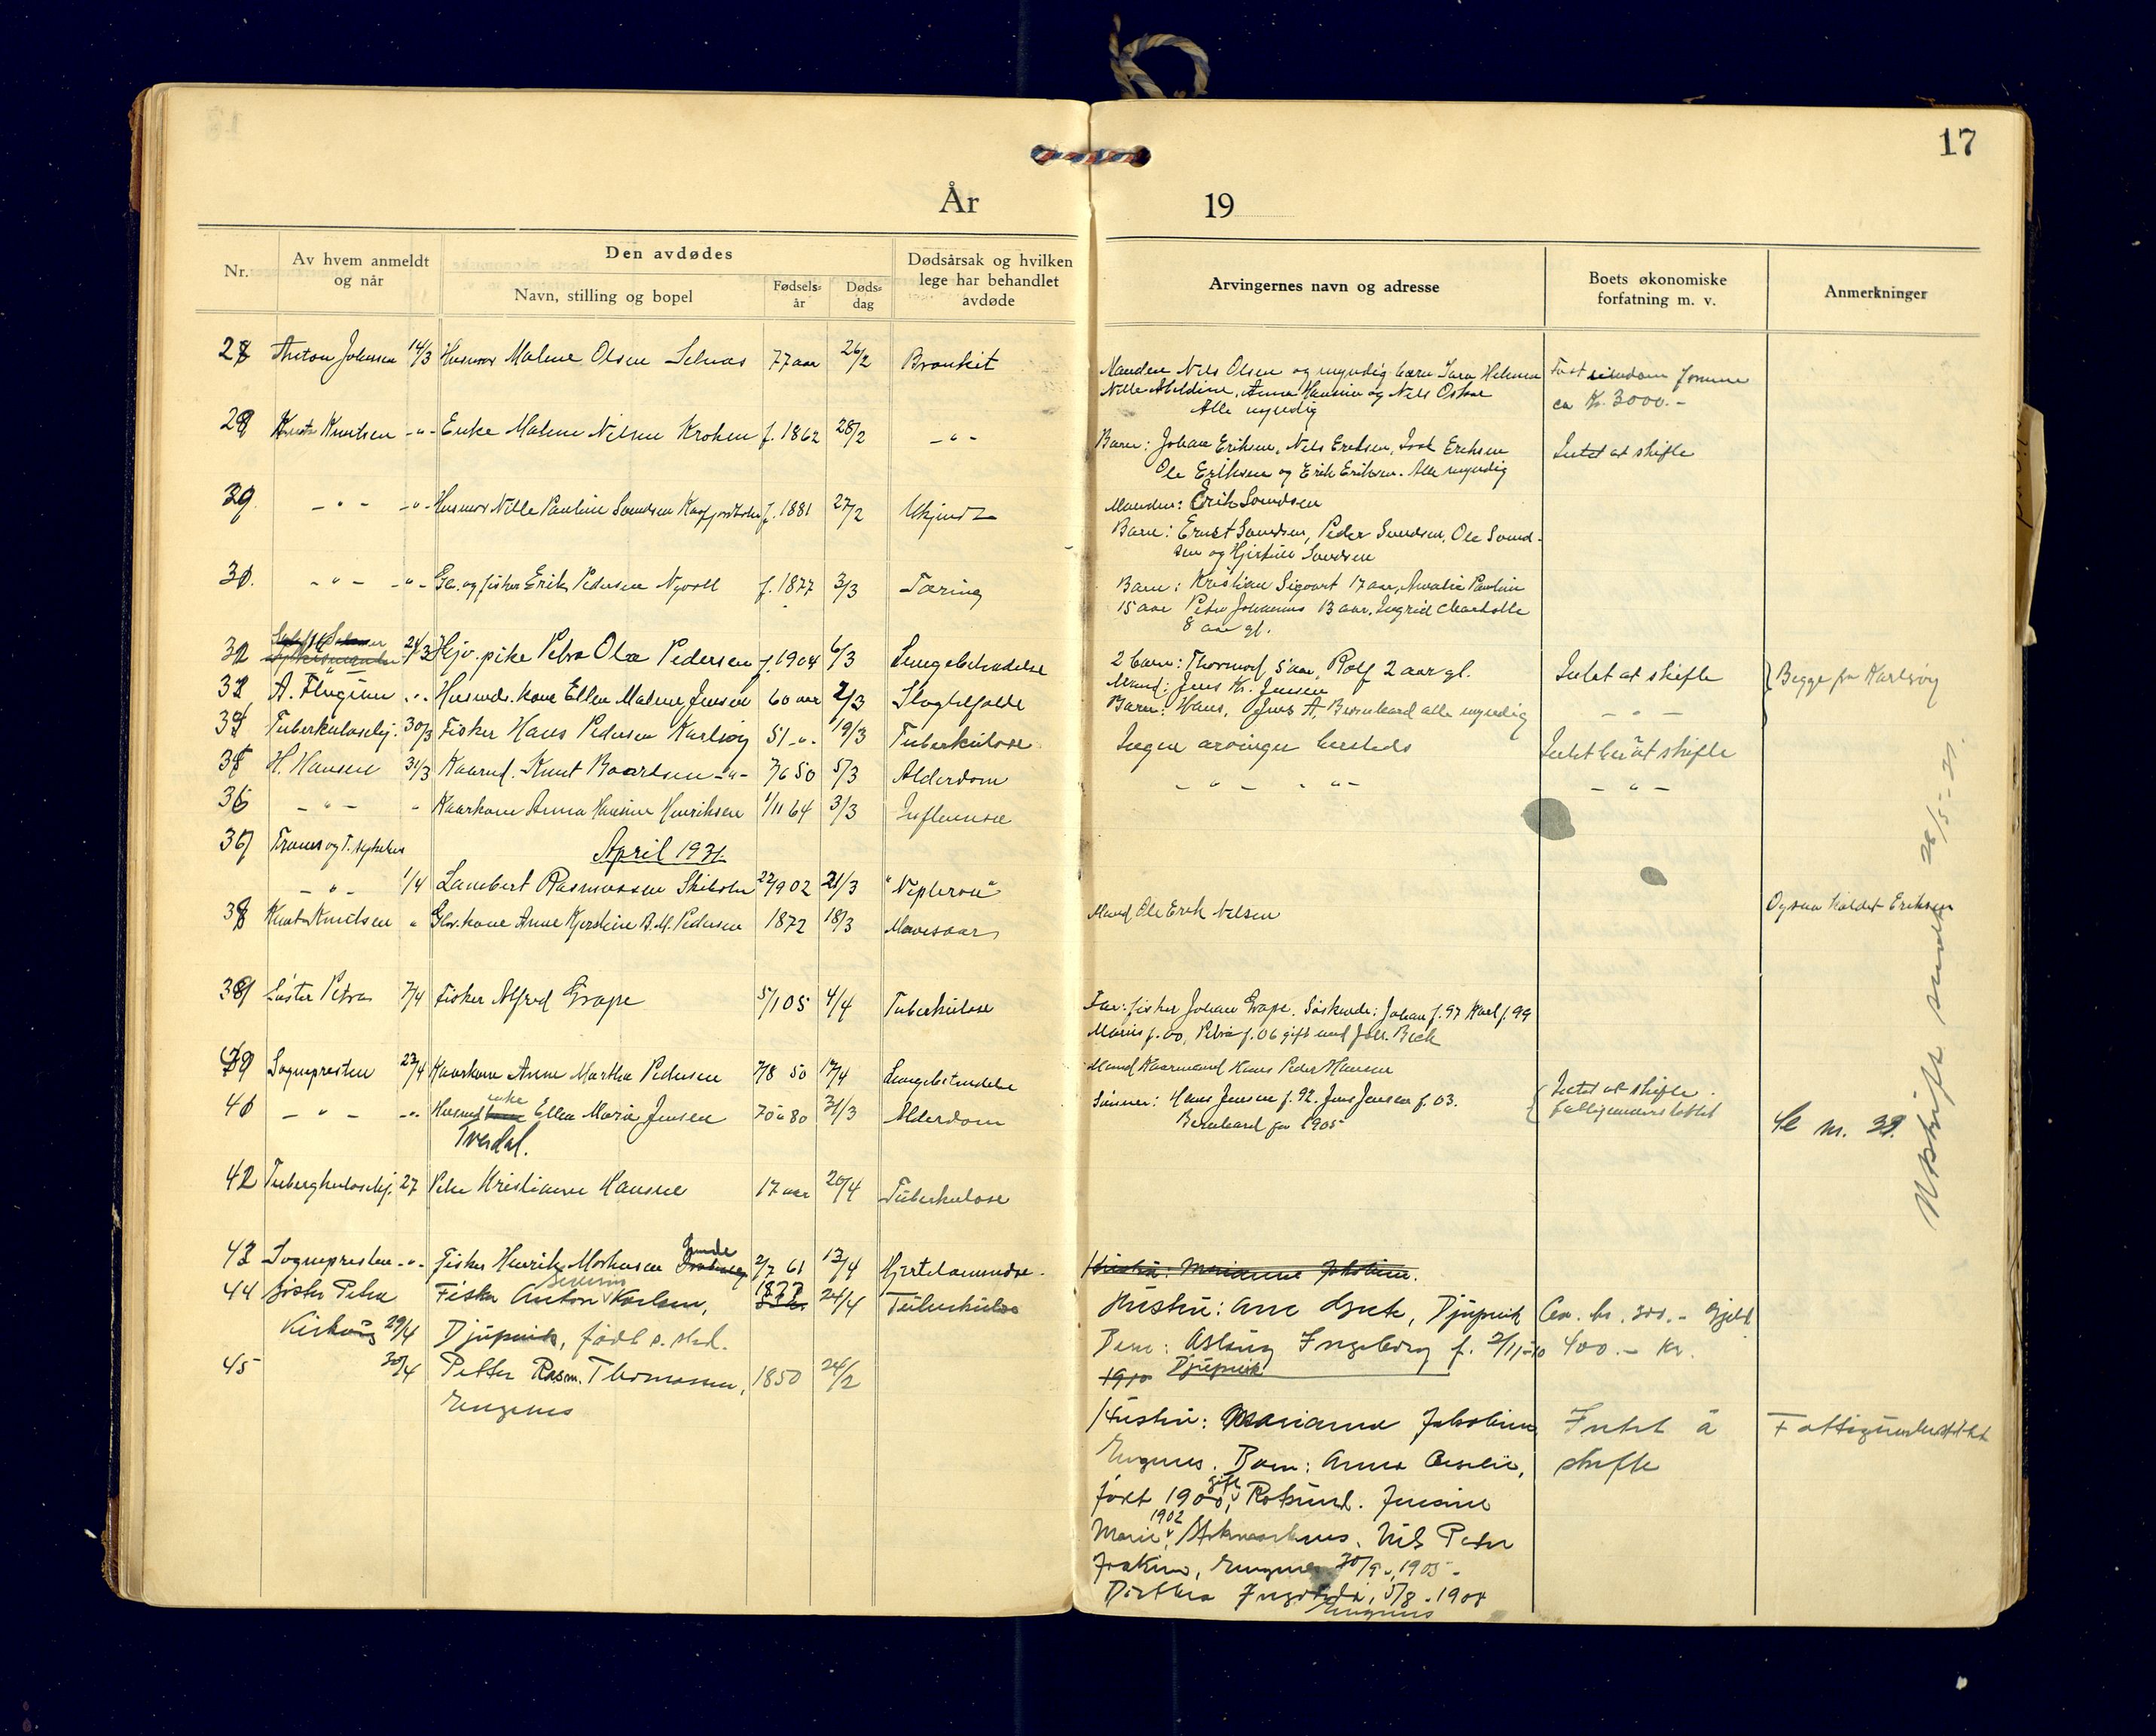 17
År 19
Nr.
Av hvem anmeldt og når
Den avdødes
Navn, stilling og bopel
Fødsels-år
Døds-dag
Dødsårsak og hvilken lege har behandlet avdøde
Arvingernes navn og adresse
Boets økonomiske forfatning m. v.
Anmerkninger
28 Anton Johnsen 14/3 Husmor Malene Olsen Selnas 77 aar 26/2 Bronkit
Manden Nils Olsen og myndig barn Sara Helmine
Nille Abeldine, Anna Hansine og Nils Oskar
Alle myndig
Fast eiendom
ca Kr. 3000.-
29 Knutsen -"- Enke Malene Nilsen Krohen f. 1862 28/2 -"-
Barn: Johan Eriksen, Nils Eriksen, Isak Eriksen
Ole Eriksen og Erik Eriksen. Alle myndig
Intet at skifte
30 -"- -"- Husmor Nille Pauline Svendsen f. 1881 27/2 Ukjendt
Manden: Erik Svendsen
Barn: Ernst Svendsen, Peder Svendsen, Ole Svend-
sen og Hjertine Svendsen
31. -"- -"- Gb. og fisker Erik Pedersen Nyvoll f. 1877 3/3 Tæring
Barn: Kristian Sigvart 17 aar, Amalie Pauline
15 aar Peter Johannes 13 aar, Ingrid Charlotte
8 aar gl.
32 24/3 Hjv. pike Petra Olea Pedersen f. 1904 6/3 Lungebetendelse
2 barn: Thormod 5 aar, Rolf 2 aar gl.
Intet at skifte
Begge fra Karlsøy
33 A. Flugum -"- Husmds. kone Ellen Malene Jensen 60 aar 2/3 Slagtilfælde
Mand: Jens Kr. Jensen
Barn: Hans, Jens A, Bernhard alle myndig
-"-
34 Tuberkulosehj. 30/3 Fisker Hans Pedersen Karlsøy 51 -"- 19/3 Tuberkulose
Ingen arvinger hersteds
Intet her at skifte
35 H. Hansen 31/3 Kaarmd. Knut Baardsen -"- 7/6 50 5/3 Alderdom
-"- -"-
-"-
36 -"- " Kaarkone Anna Hansine Henriksen 1/11 64 3/3 Influensa
37 Troms og T. sykehus
April 1931.
-"- 1/4 Lambert Rasmussen Skibotn 22/9 02 21/3
38 Knut Knutsen " Gbr.kone Anne Kjerstine B. M. Pedersen 1872 18/3 Mavesaar
Mand Ole Erik Nilsen
Ogsaa kaldet Eriksen
39 Søster Petra 7/4 Fisker Alfred Grape 5/1 05 4/4 Tuberkulose
Far: fisker Johan Grape. Søskende: Johan f. 97 Karl f. 99
Marius f. 00, Petra f. 06 gift med Joh. Bæk
40 Sognepresten 23/4 Kaarkone Anne Martha Pedersen 7/8 50 17/4 Lungebetendelse
Mand Kaarmand Hans Peder Hansen
41 -"- -"- Husmds enke Ellen Maria Jensen 31/3 Alderdom
Tverdal.
Sønner: Hans Jensen f. 92. Jens Jensen f. 03.
Bernhard 1905
Intet at skifte.
fattigunderstøttet
Se nr. 33.
42 Tuberkulosehj. 27 Peter Kristiansen Hansen 17 aar 20/4 Tuberkulose
43 Sognepresten -"- Fisker Henrik Mortensen 2/7 61 13/4 Hjertelammelse.
Hustru: Marianne Jakobine.
44 Søster Petra Fisker Anton Severin Karlsen, 1877 24/4 Tuberkulose
29/4 Djupvik, født s. sted.
Hustru: Ane Djupvik
Barn: Aslaug Ingeborg f. 2/11-10
1910 Djupvik
Ca. kr. - Gjeld
400.- Kr.
45 30/4 Petter Rasm. Thomassen, 1850 24/2
Engenes
Hustru: Marianne Jakobine
Engenes. Barn: Anna Amalie,
født 1900, gift Rotsund. Jensine
Marie, 1902 Nils Peter
Joakim, Engenes 30/9, 1905-
Dorthea 5/8-1908
Engenes
Intet å
skifte
Fattigunderstøttet
Utskift sendt 26/5-31.